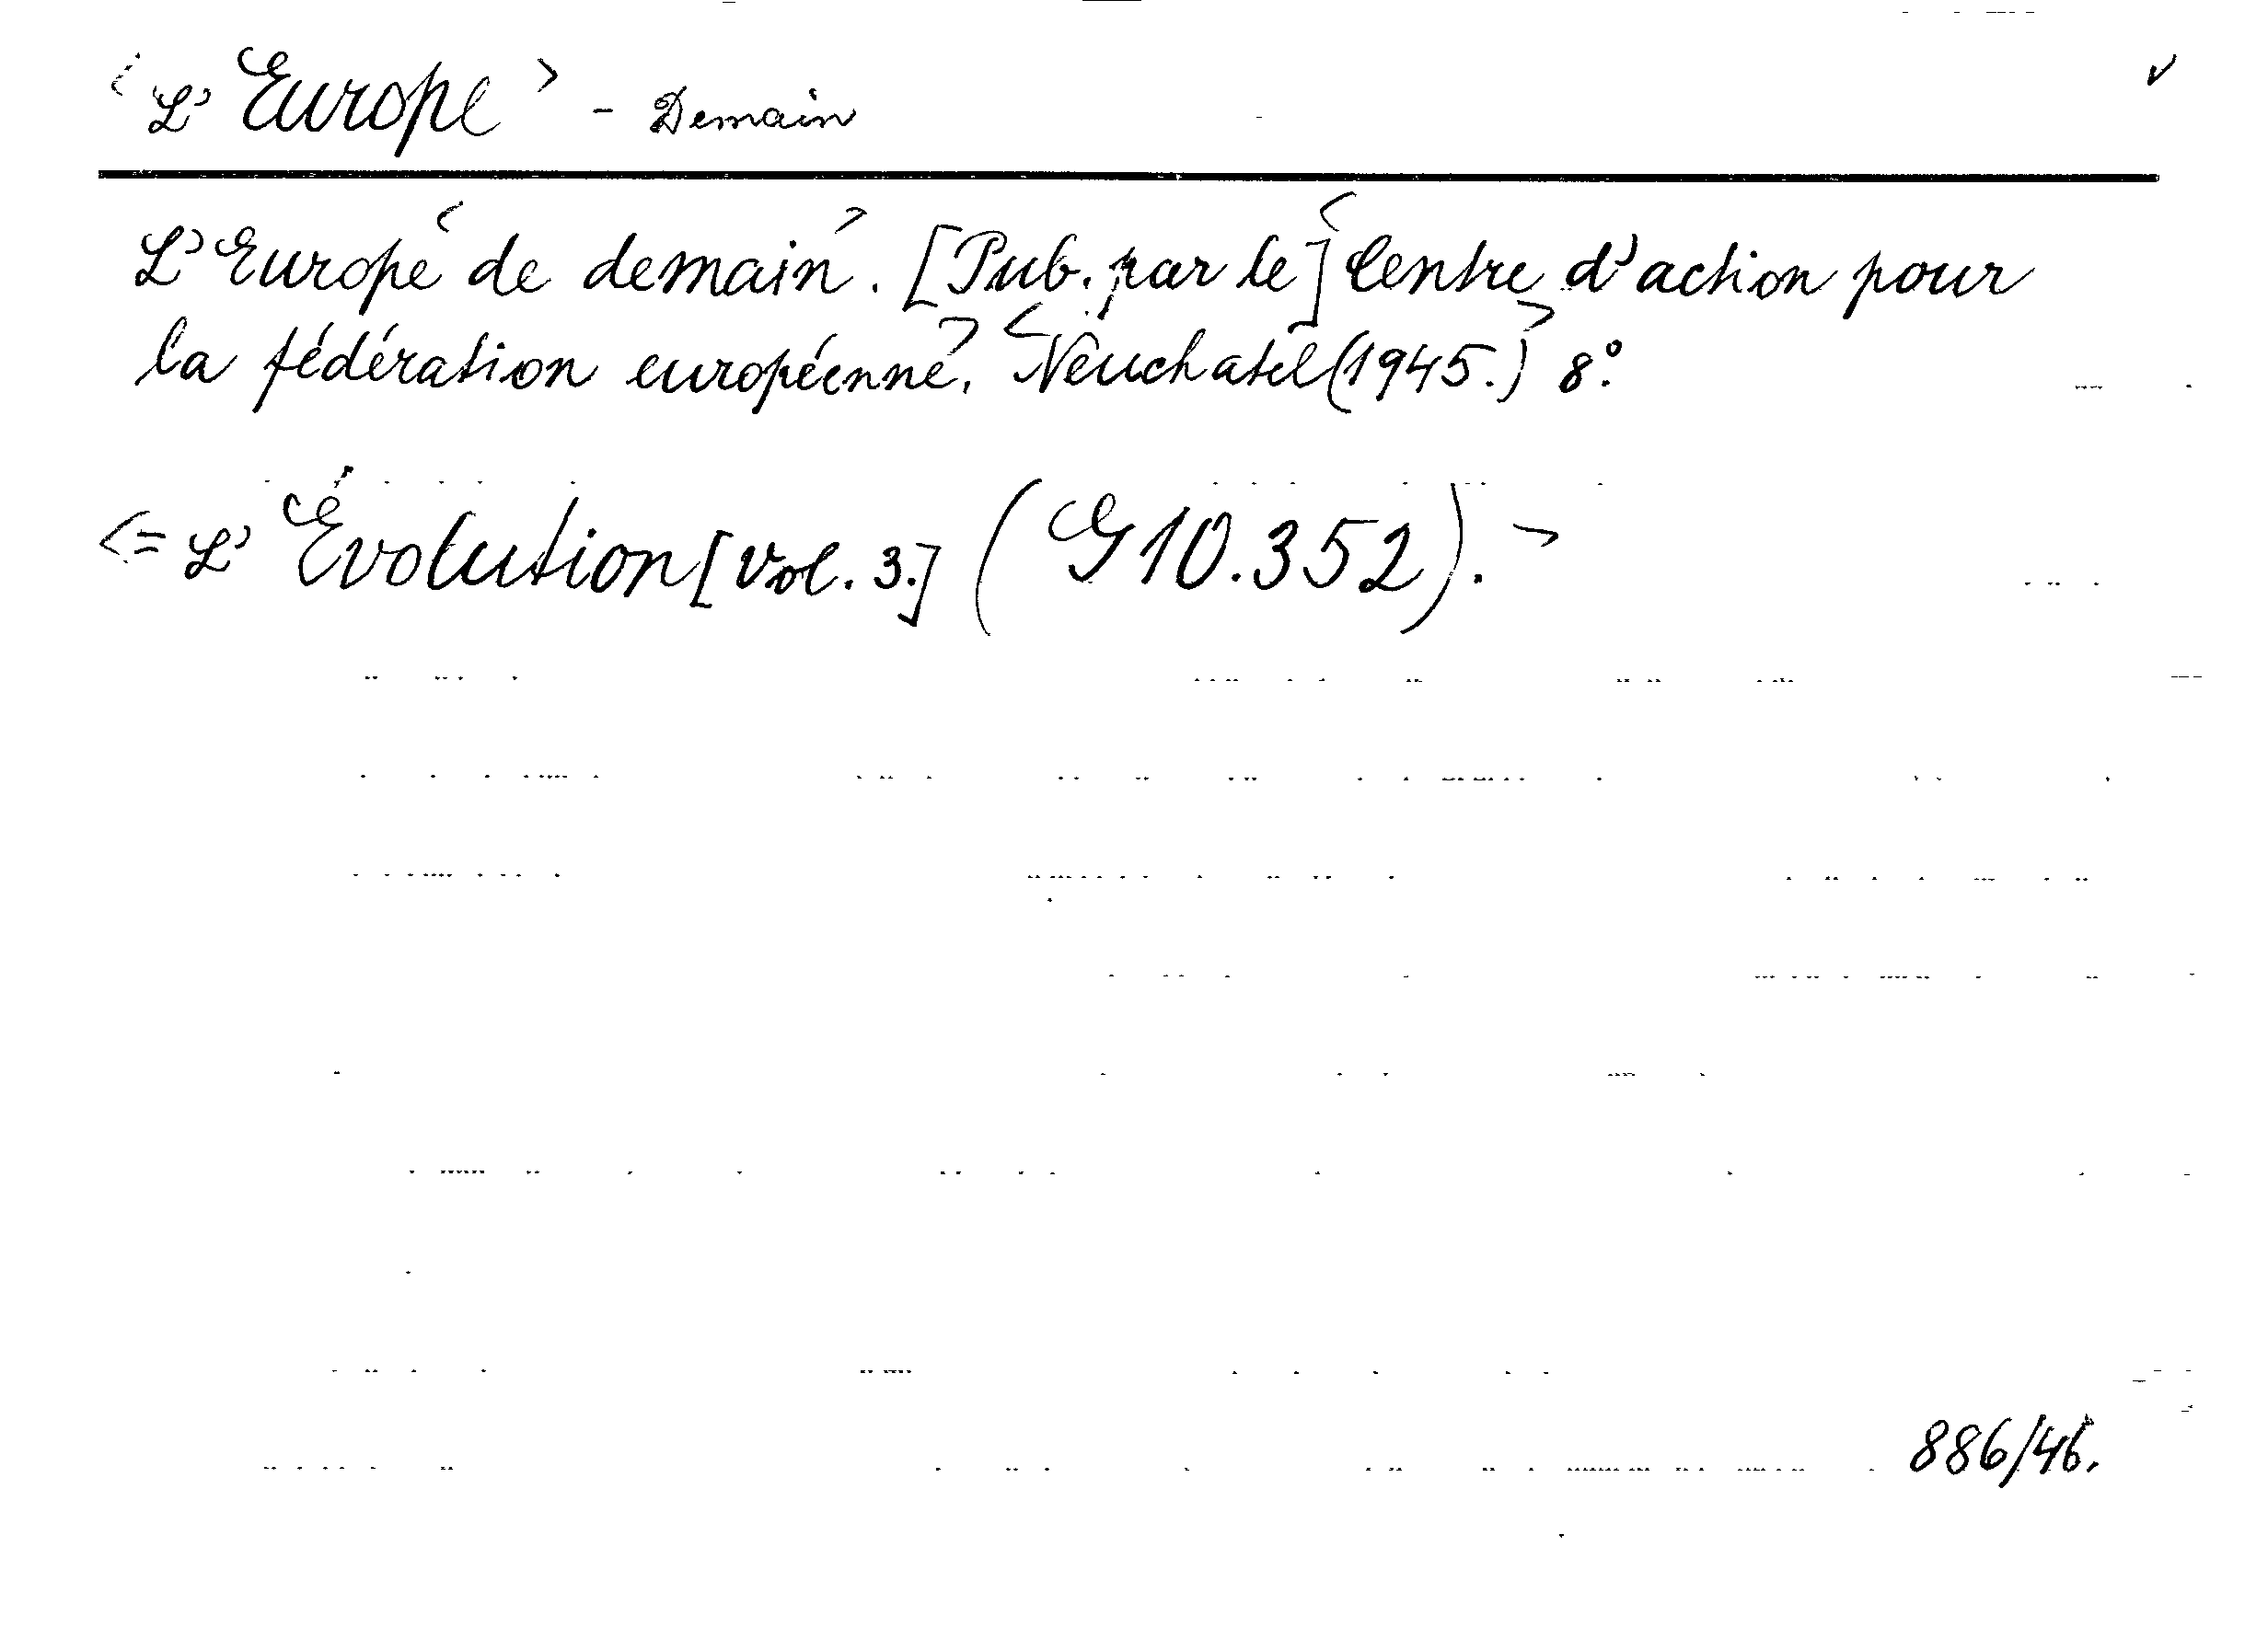 <L' Europe> - Demain
L'Europe <de demain>. [Pub. par le] <Centre d'action pour
la fédération européenne>. <Neuchatel (1945.)> 8°.
<= L' Évolution [Vol. 3.] (G 10.352).>
886/46.